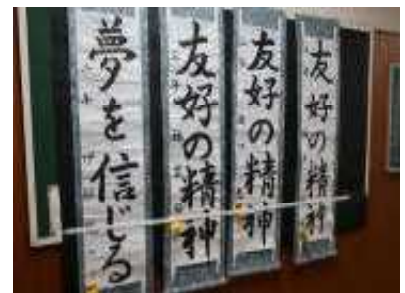 友好の精神
友好の精神
友好の精神
夢を信じる